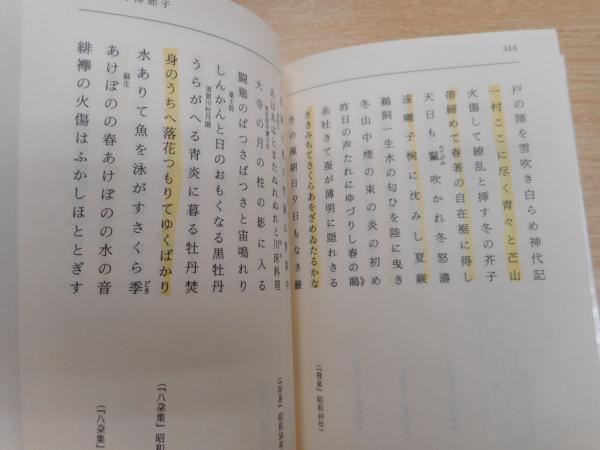 344
戸の隙を雪吹き白らめ神代記
一村ここに尽く青々と芒山
火傷して繚乱と挿す冬の芥子
帯締めて春著の自在裾に得し
天日も鬣吹かれ冬怒濤
遠囃子椀に沈みし夏蕨
鵜飼一生水の匂ひを陸に曳き
冬山中煙の束の炎の初め
昨日の声たれにゆづりし春の鵙
糸吐きて蚕が薄明に隠れきる
ききみちてさくらあをざめゐたるかな
冬の滝朝日夕日もなき巌
(『飛泉』昭和49年)
節子
あはあはとまたぬれぬれと川床料理
大寺の月の柱の影に入る
闘鶏のばつさばつさと宙鳴れり
しんかんと日のおもくなる黒牡丹
須賀川牡丹園
うらがへる青炎に暮る牡丹焚
身のうちへ落花つもりてゆくばかり
水ありて魚を泳がすさくら季
蘇生
あけぼのの春あけぼのの水の音
緋襷の火傷はふかしほととぎす
昭和54年)
(『八朶集』昭和
(『八朶集』